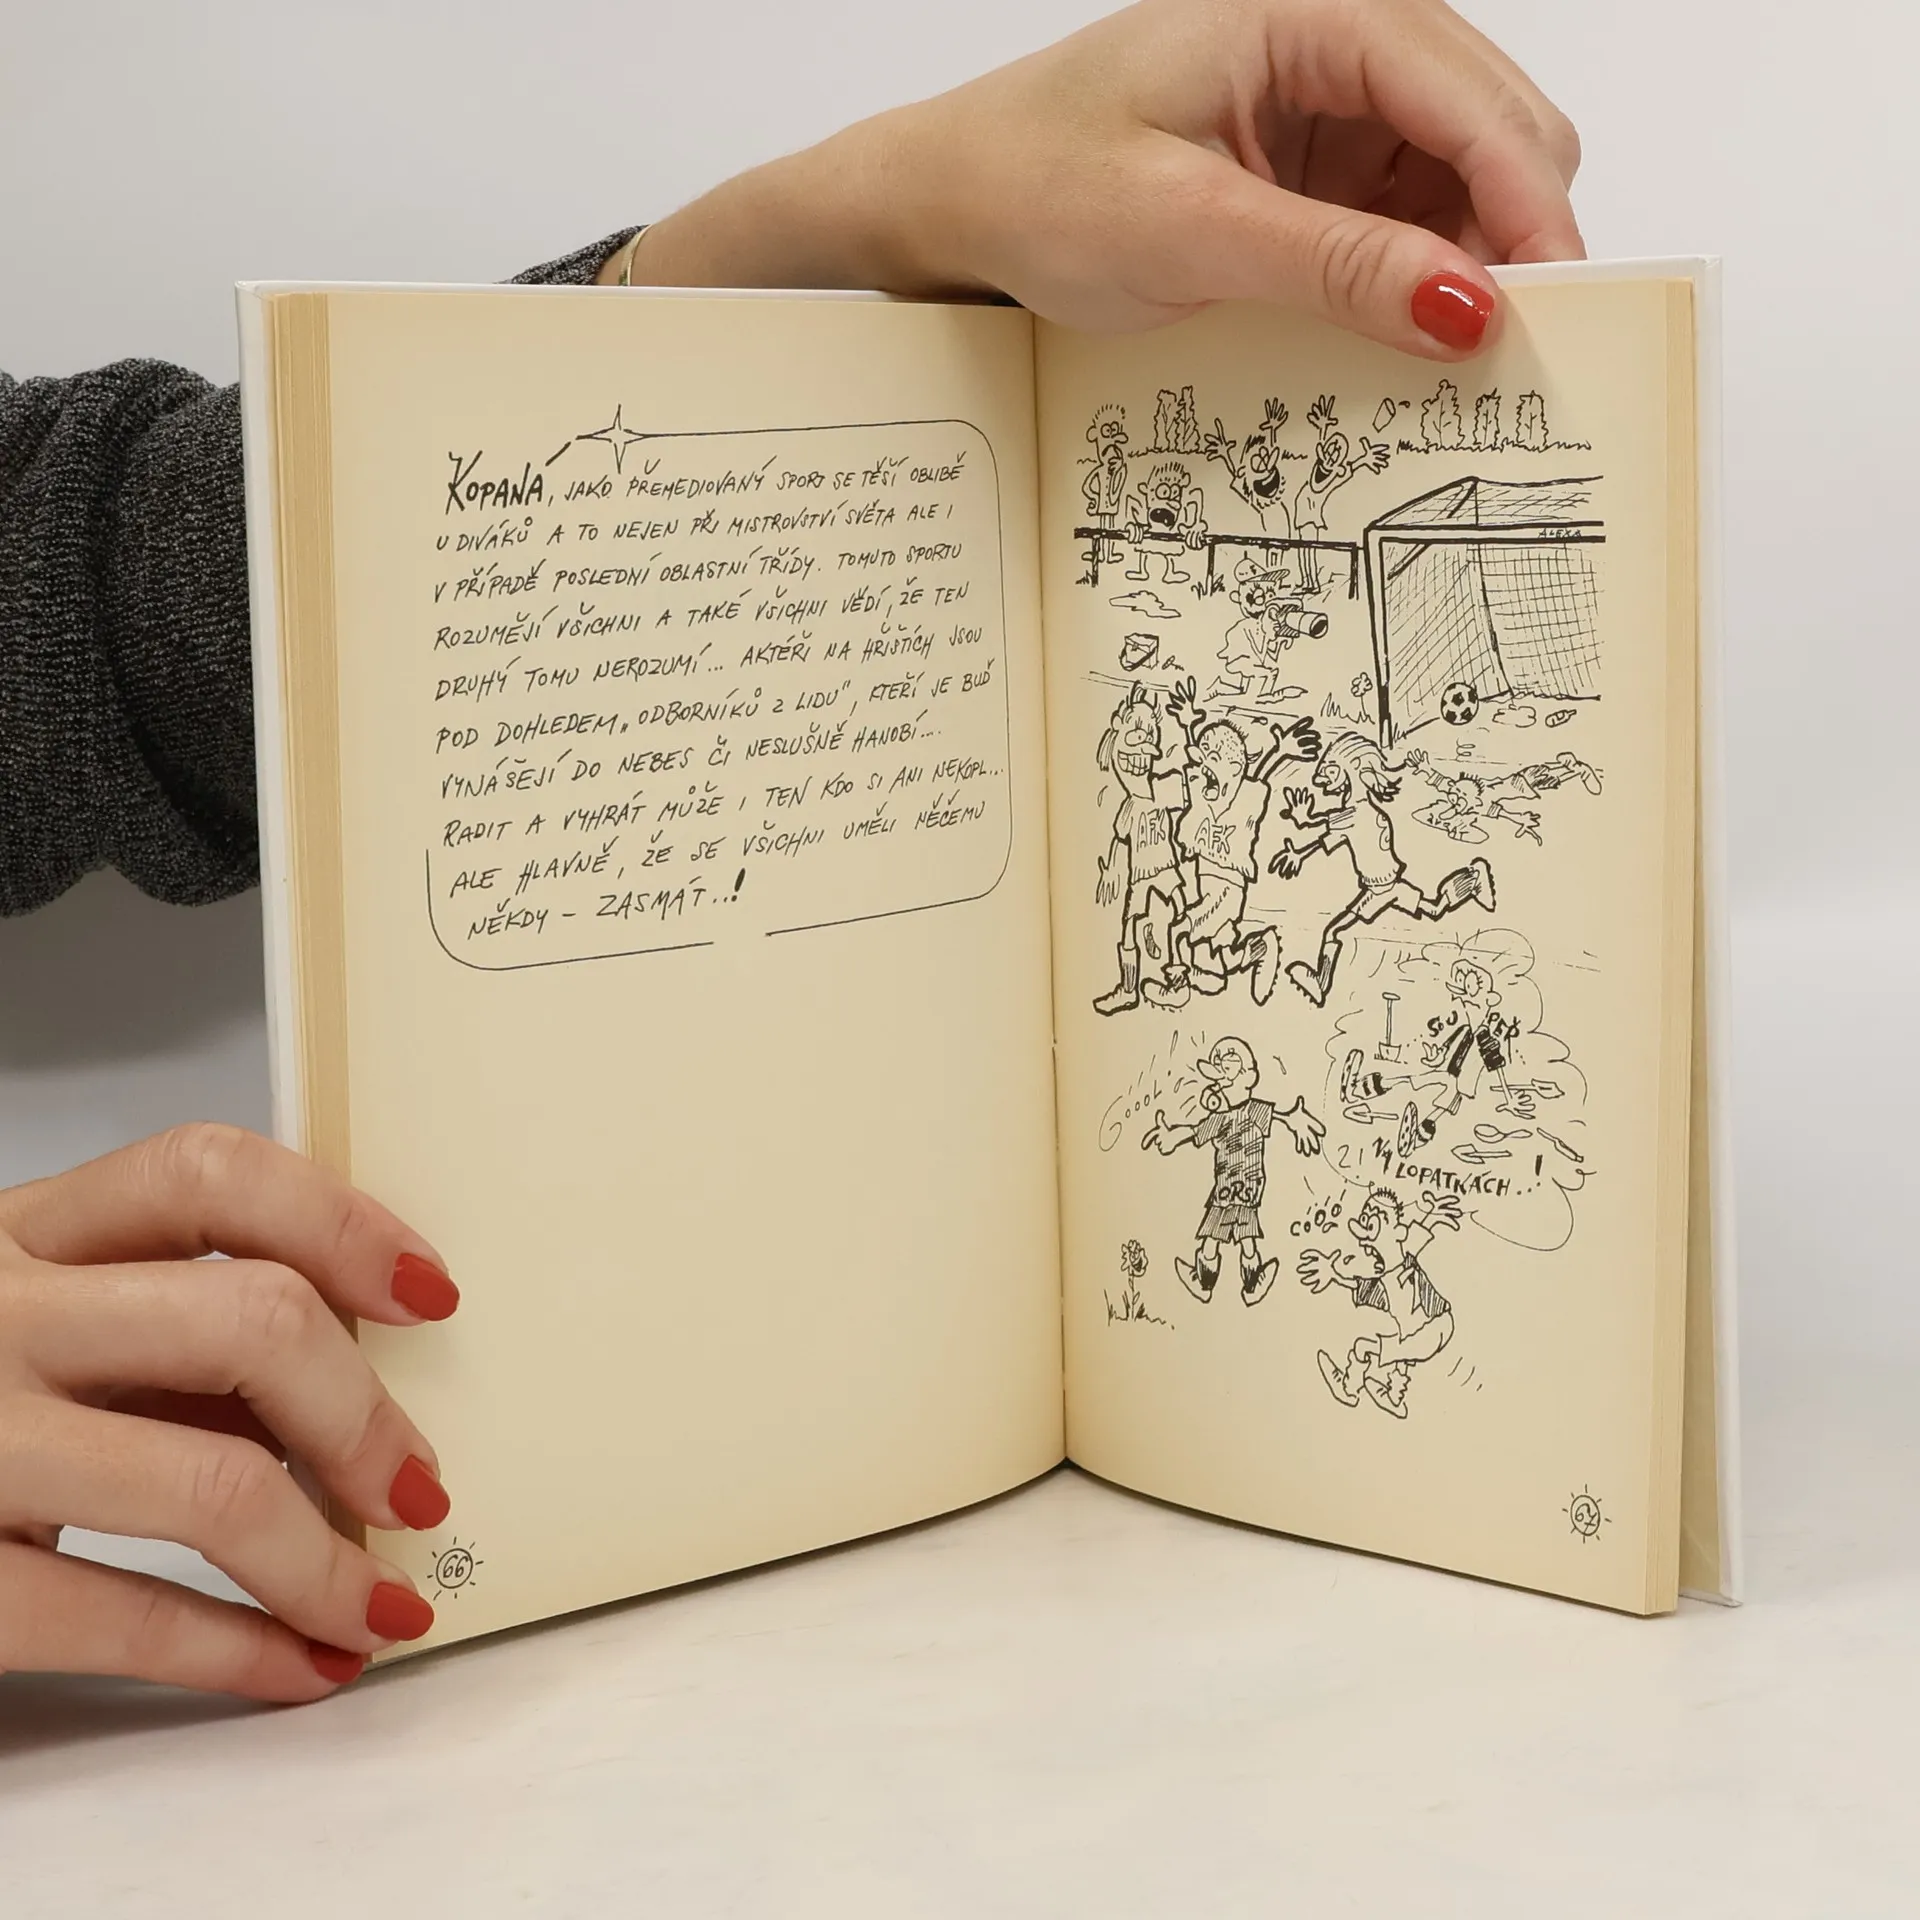 KOPANÁ, JAKO PŘEMEDIOVANÝ SPORT SE TĚŠÍ OBLIBĚ
U DIVÁKŮ A TO NEJEN PŘI MISTROVSTVÍ SVĚTA ALE I
V PŘÍPADĚ POSLEDNÍ OBLASTNÍ TŘÍDY. TOMUTO SPORTU
ROZUMĚJÍ VŠICHNI A TAKÉ VŠICHNI VĚDÍ, ŽE TEN
DRUHÝ TOMU NEROZUMÍ... AKTÉŘI NA HŘIŠTÍCH JSOU
POD DOHLEDEM „ODBORNÍKŮ Z LIDU", KTEŘÍ JE BUĎ
VYNÁŠEJÍ DO NEBES ČI NESLUŠNĚ HANOBÍ....
RADIT A VYHRÁT MŮŽE I TEN KDO SI ANI NEKOPL...
ALE HLAVNĚ, ŽE SE VŠICHNI UMĚLI NĚČEMU
NĚKDY - ZASMÁT..!
66
ALEXA
AFK
AFK
SOU
PEŘ
GÓOOL!
ORS!
COOO
2! VY LOPATKÁCH..!
67